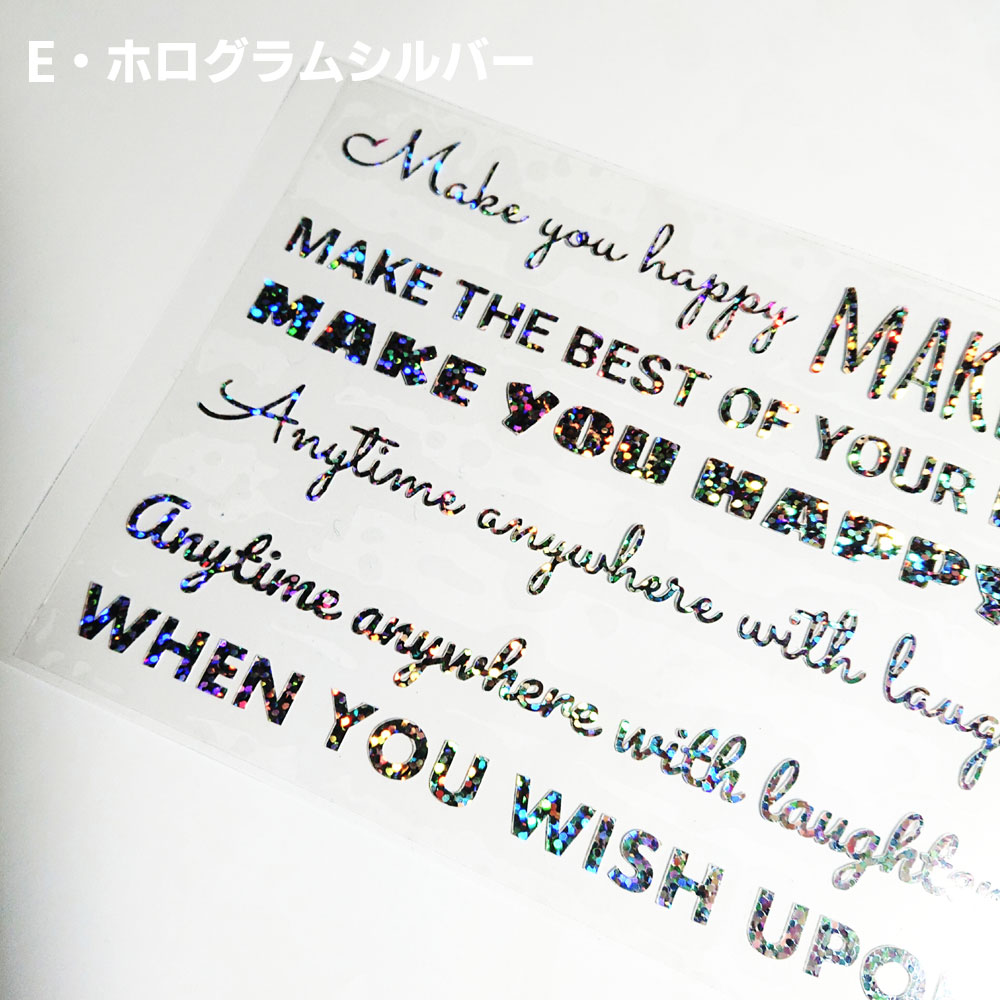 E・ホログラムシルバー
Make you happy
MAK
MAKE THE BEST OF YOUR
MAKE YOU HAPPY
Anytime anywhere with laug
Anytime anywhere with laughte
WHEN YOU WISH UPO